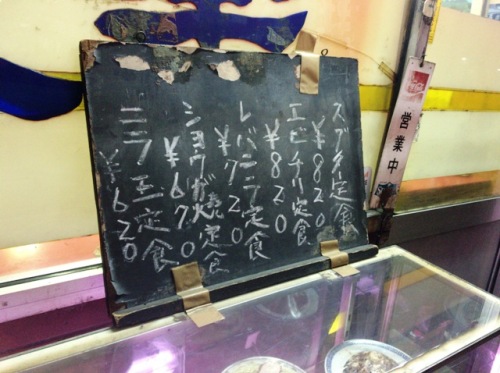 スブタ定食
¥820
エビチリ定食
¥820
レバニラ定食
¥720
ショウガ焼定食
¥670
ニラ玉定食
¥620
営業中